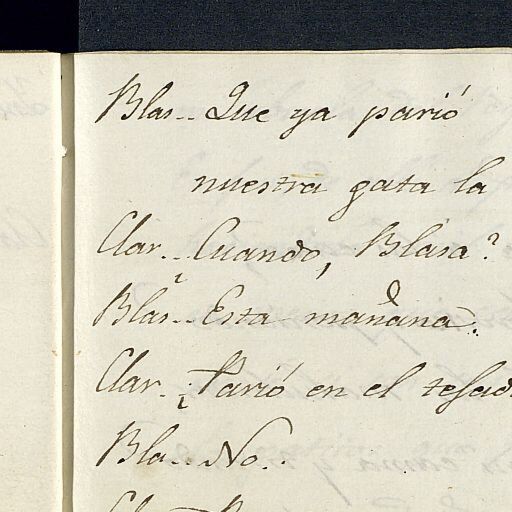 Blas.. Que ya parió
nuestra gata la
Clar.. ¿Cuando, Blasa?
Blas.. Esta mañana.
Clar. ¿Parió en el
Bla.. No..